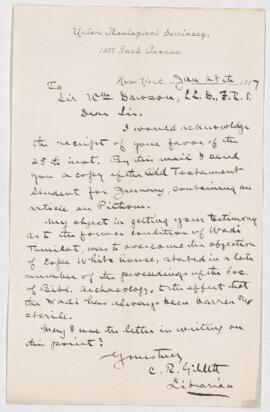 Union Theological Seminary,
1200 Park Avenue.
New York, Jan 28th 1887
To
Sir Wm Dawson, LL.D., F.R.S.
Dear Sir.
I would acknowledge
the receipt of your favor of the
25th inst. By this mail I send
you a copy of the Old Testament
Student for January, containing an
article on Pithom.
My object in getting your testimony
as to the former condition of Wadi
Tumilat, was to overcome the objection
of Cope Whitehouse, stated in a late
number of the proceedings of the Soc.
of Bibl. Archaeology, to the effect that
the Wadi has always been barren &
sterile.
May I use the letter in writing on
this point?
Yours truly
C. R. Gillett
Librarian